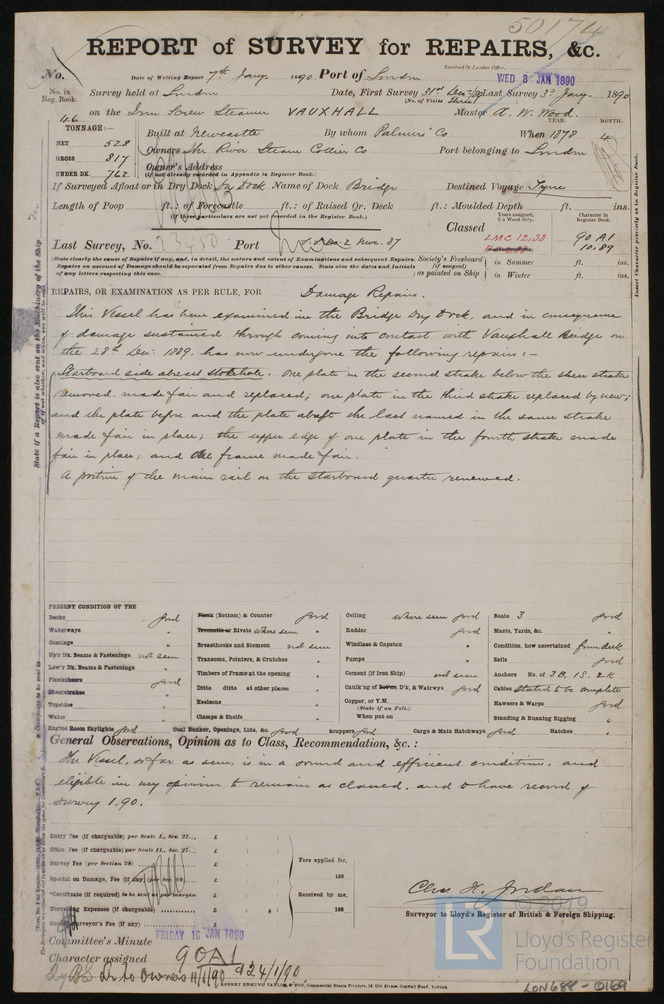 50174
REPORT of SURVEY for REPAIRS, &c.
Received in London Office,
No. Date of Writing Report 7th Jany 1890 Port of London WED 8 JAN 1890
No. in Reg. Book. Survey held at London Date, First Survey 31st Dec/89 Last Survey 3d Jany 1890
(No. of Visits Three)
46 on the Iron Screw Steamer VAUXHALL Master A. W. Wood.
TONNAGE:— YEAR. MONTH.
NET 528 Built at Newcastle By whom Palmers' Co When 1878 4
GROSS 817 Owners The River Steam Collier Co Port belonging to London
UNDER DK. 762 Owner's Address
(if not already recorded in Appendix to Register Book.)
If Surveyed Afloat or in Dry Dock Dry Dock Name of Dock Bridge Destined Voyage Tyne
Length of Poop ft.: of Forecastle ft.: of Raised Qr. Deck ft.: Moulded Depth ft. ins.
(If these particulars are not yet recorded in the Register Book.)
Years assigned, if a Wood Ship. Character in Register Book.
Classed LMC 12,88 90 A1
10.89
Last Survey, No. 23450 Port
(State clearly the cause of Repairs if any, and, in detail, the nature and extent of Examinations and subsequent Repairs.
Repairs on account of Damage should be separated from Repairs due to other causes. State also the dates and Initials
of any letters respecting this case.
Society's Freeboard (if assigned) as painted on Ship in Summer ft. ins.
in Winter ft. ins.
REPAIRS, OR EXAMINATION AS PER RULE, FOR Damage Repairs.
This Vessel has been examined in the Bridge Dry Dock, and in consequence
of damage sustained through coming into contact with Vauxhall Bridge on
the 28th Dec: 1889. has now undergone the following repairs:—
Starboard side abreast stokehole. One plate in the second strake below the sheer strake
removed, made fair and replaced; one plate in the third strake replaced by new;
and the plate before and the plate abaft the last named in the same strake
made fair in place; the upper edge of one plate in the fourth strake made
fair in place; and one frame made fair.
A portion of the main rail on the starboard quarter renewed.
PRESENT CONDITION OF THE
Decks good
Waterways "
Coamings "
Up'r Dk. Beams & Fastenings not seen
Low'r Dk. Beams & Fastenings "
Planksheers good
Sheerstrakes "
Topsides "
Wales "
Plank (Bottom) & Counter good
Treenails or Rivets where seen "
Breasthooks and Stemson not seen
Transoms, Pointers, & Crutches "
Timbers of Frame at the opening "
Ditto ditto at other places "
Keelsons "
Clamps & Shelfs "
Ceiling where seen good
Rudder good
Windlass & Capstan "
Pumps "
Cement (if Iron Ship) not seen
Caulk'ng of Bottom D'k, & Watrwys good
Copper, or Y.M. (State if on Felt.)
When put on
Boats 3 good
Masts, Yards, &c. "
Condition, how ascertained from deck
Sails good
Anchors No. of 3B. 1S. 2K
Cables stated to be complete
Hawsers & Warps good
Standing & Running Rigging "
Engine Room Skylights good Coal Bunker, Openings, Lids, &c. good Scuppers good Cargo & Main Hatchways good Hatches "
General Observations, Opinion as to Class, Recommendation, &c. :
The Vessel, so far as seen, is in a sound and efficient condition, and
eligible in my opinion to remain as classed, and to have record of
survey 1.90.
Entry Fee (if chargeable) per Scale I., Sec. 27... £ : :
Office Fee (if chargeable) per Scale II., Sec. 27... £ : :
Survey Fee (per Section 28) £ : :
Special on Damage, Fee (if any) (per Sec. 28) £ : :
*Certificate (if required) to be sent as per margin £ : :
Travelling Expenses (if chargeable) £ : :
Surveyor's Fee (if any) £ : :
Fees applied for,
188
Received by me,
188
Chas H. Jordan
Surveyor to Lloyd's Register of British & Foreign Shipping.
Committee's Minute FRIDAY 10 JAN 1890
Character assigned 90A1
Lr to Owners 11/1/90 24/1/90
ROBERT EDMUND TAYLOR & SON, Commercial Steam Printers, 19 Old Street, Goswell Road, London
© 2019
LR
Lloyd's Register
Foundation
LON688-0169